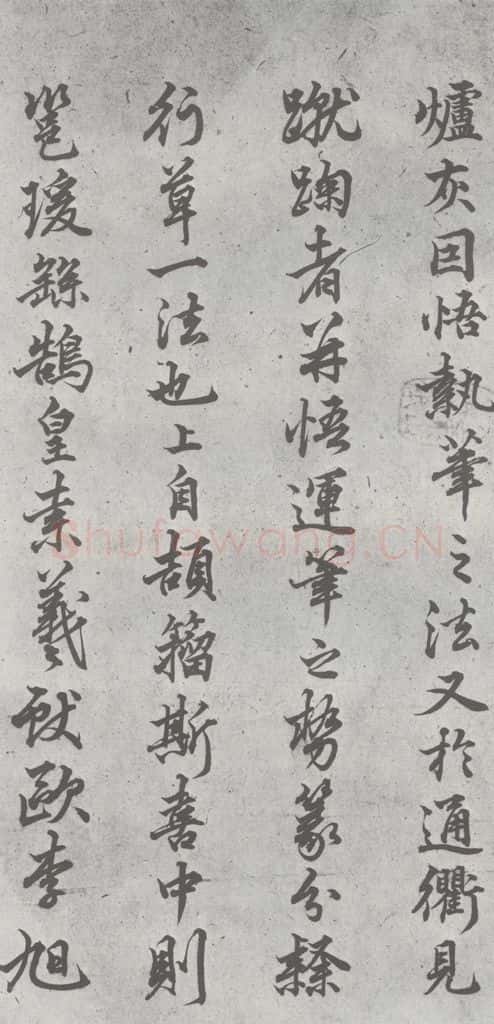 爐灰因悟執筆之法又於通衢見
蹴踘者並悟運筆之勢篆分隸
行草一法也上自頡籀斯喜中則
邕瑗繇鵠皇索羲獻歐李旭
Shufawang.CN